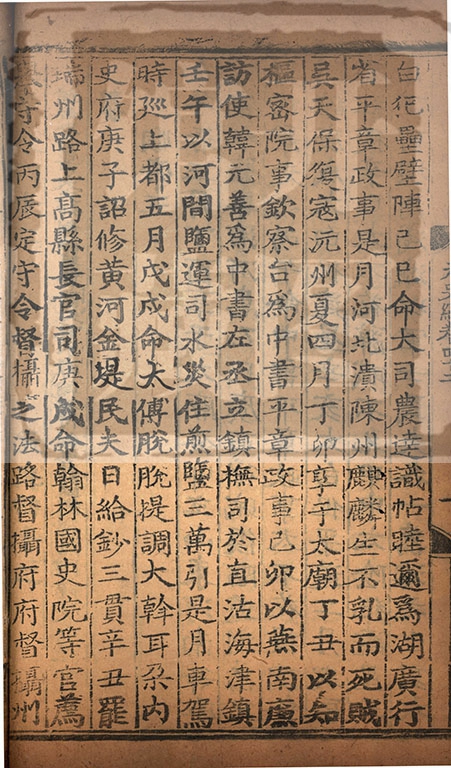 白犯壘壁陣己巳命大司農達識帖睦邇爲湖廣行
省平章政事是月河北潰陳州麒麟生不乳而死賊
吳天保復寇沅州夏四月丁卯享于太廟丁丑以知
樞密院事欽察台爲中書平章政事己卯以燕南廉
訪使韓元善爲中書左丞立鎮撫司於直沽海津鎮
壬午以河間鹽運司水災住煎鹽三萬引是月車駕
時廵上都五月戊戌命太傅脫脫提調大斡耳朶内
史府庚子詔修黃河金堤民夫日給鈔三貫辛丑罷
瑞州路上高縣長官司庚戌命翰林國史院等官薦
舉守令丙辰定守令督攝之法路督攝府府督攝州